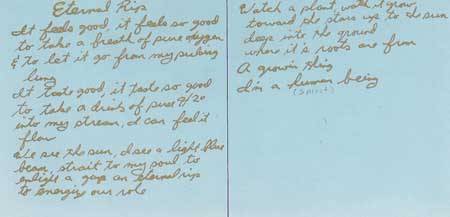 Eternal Rip
It feels good, it feels so good
to take a breath of pure oxygen
& to let it go from my
lung
It taste good, it taste so good
to take a drink of pure H20
into my stream, I can feel it
flow
We are the sun, I see a light blue
beam, strait to my soul to
enlight a gap an eternal rip
to energize our role
Watch a plant, watch it grow,
toward the stars up to the sun
deep into the ground
where it's roots are from
A growin thing
I'm a human being
(spirit)